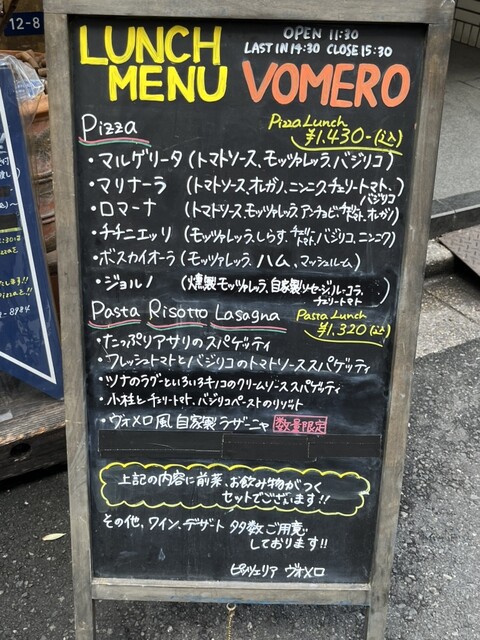 12-8
LUNCH MENU
OPEN 11:30
LAST IN 14:30 CLOSE 15:30
VOMERO
Pizza
Pizza Lunch
¥1,430-(込)
・マルゲリータ (トマトソース、モッツァレッラ、バジリコ)
・マリナーラ (トマトソース、オレガノ、ニンニク、チェリートマト、バジリコ)
・ロマーナ (トマトソース、モッツァレッラ、アンチョビ、チェリートマト、オレガノ)
・チチニエッリ (モッツァレッラ、しらす、チェリートマト、バジリコ、ニンニク)
・ボスカイオーラ (モッツァレッラ、ハム、マッシュルーム)
・ジョルノ (燻製モッツァレラ、自家製ソーセージ、ルーコラ、チェリートマト)
Pasta Risotto Lasagna
Pasta Lunch
¥1,320(込)
・たっぷりアサリのスパゲッティ
・フレッシュトマトとバジリコのトマトソーススパゲッティ
・ツナのラグーといろいろキノコのクリームソーススパゲッティ
・小柱とチェリートマト、バジリコペーストのリゾット
・ヴォメロ風 自家製ラザーニャ 数量限定
上記の内容に前菜、お飲み物がつく
セットでございます!!
その他、ワイン、デザート 多数ご用意
しております!!
ピッツェリア ヴォメロ